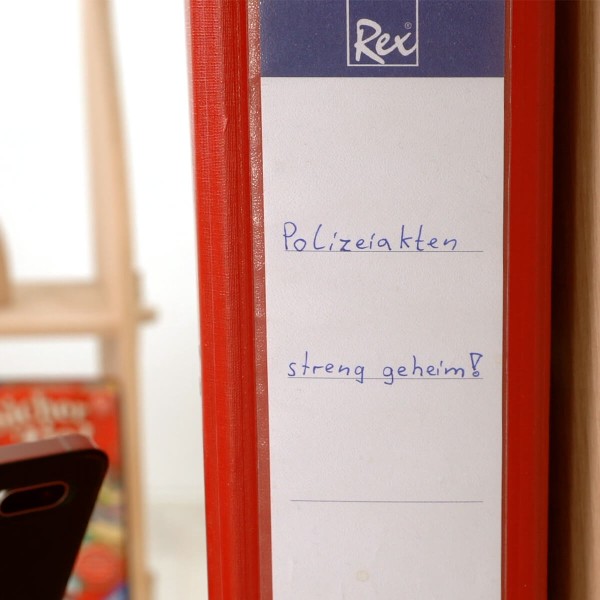 Rex
Polizeiakten
streng geheim!